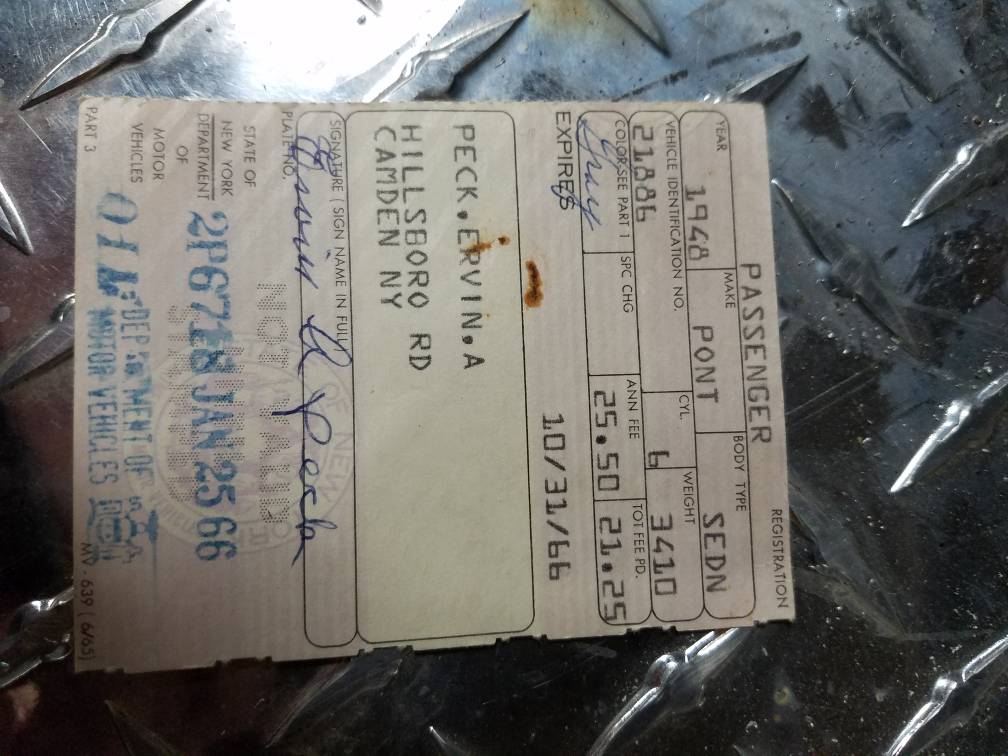 REGISTRATION
PASSENGER
YEAR MAKE BODY TYPE
1948 PONT SEDN
VEHICLE IDENTIFICATION NO. CYL. WEIGHT
21886 6 3410
COLOR-SEE PART 1 SPC CHG ANN FEE TOT FEE PD.
Gray 25.50 21.25
EXPIRES 10/31/66
PECK.ERVIN.A
HILLSBORO RD
CAMDEN NY
SIGNATURE (SIGN NAME IN FULL)
Ervin A Peck
PLATE NO.
STATE OF
NEW YORK
DEPARTMENT
OF
MOTOR
VEHICLES
2P6718 JAN 25 66
DEPARTMENT OF
MOTOR VEHICLES
PART 3 MV-639 (6/65)